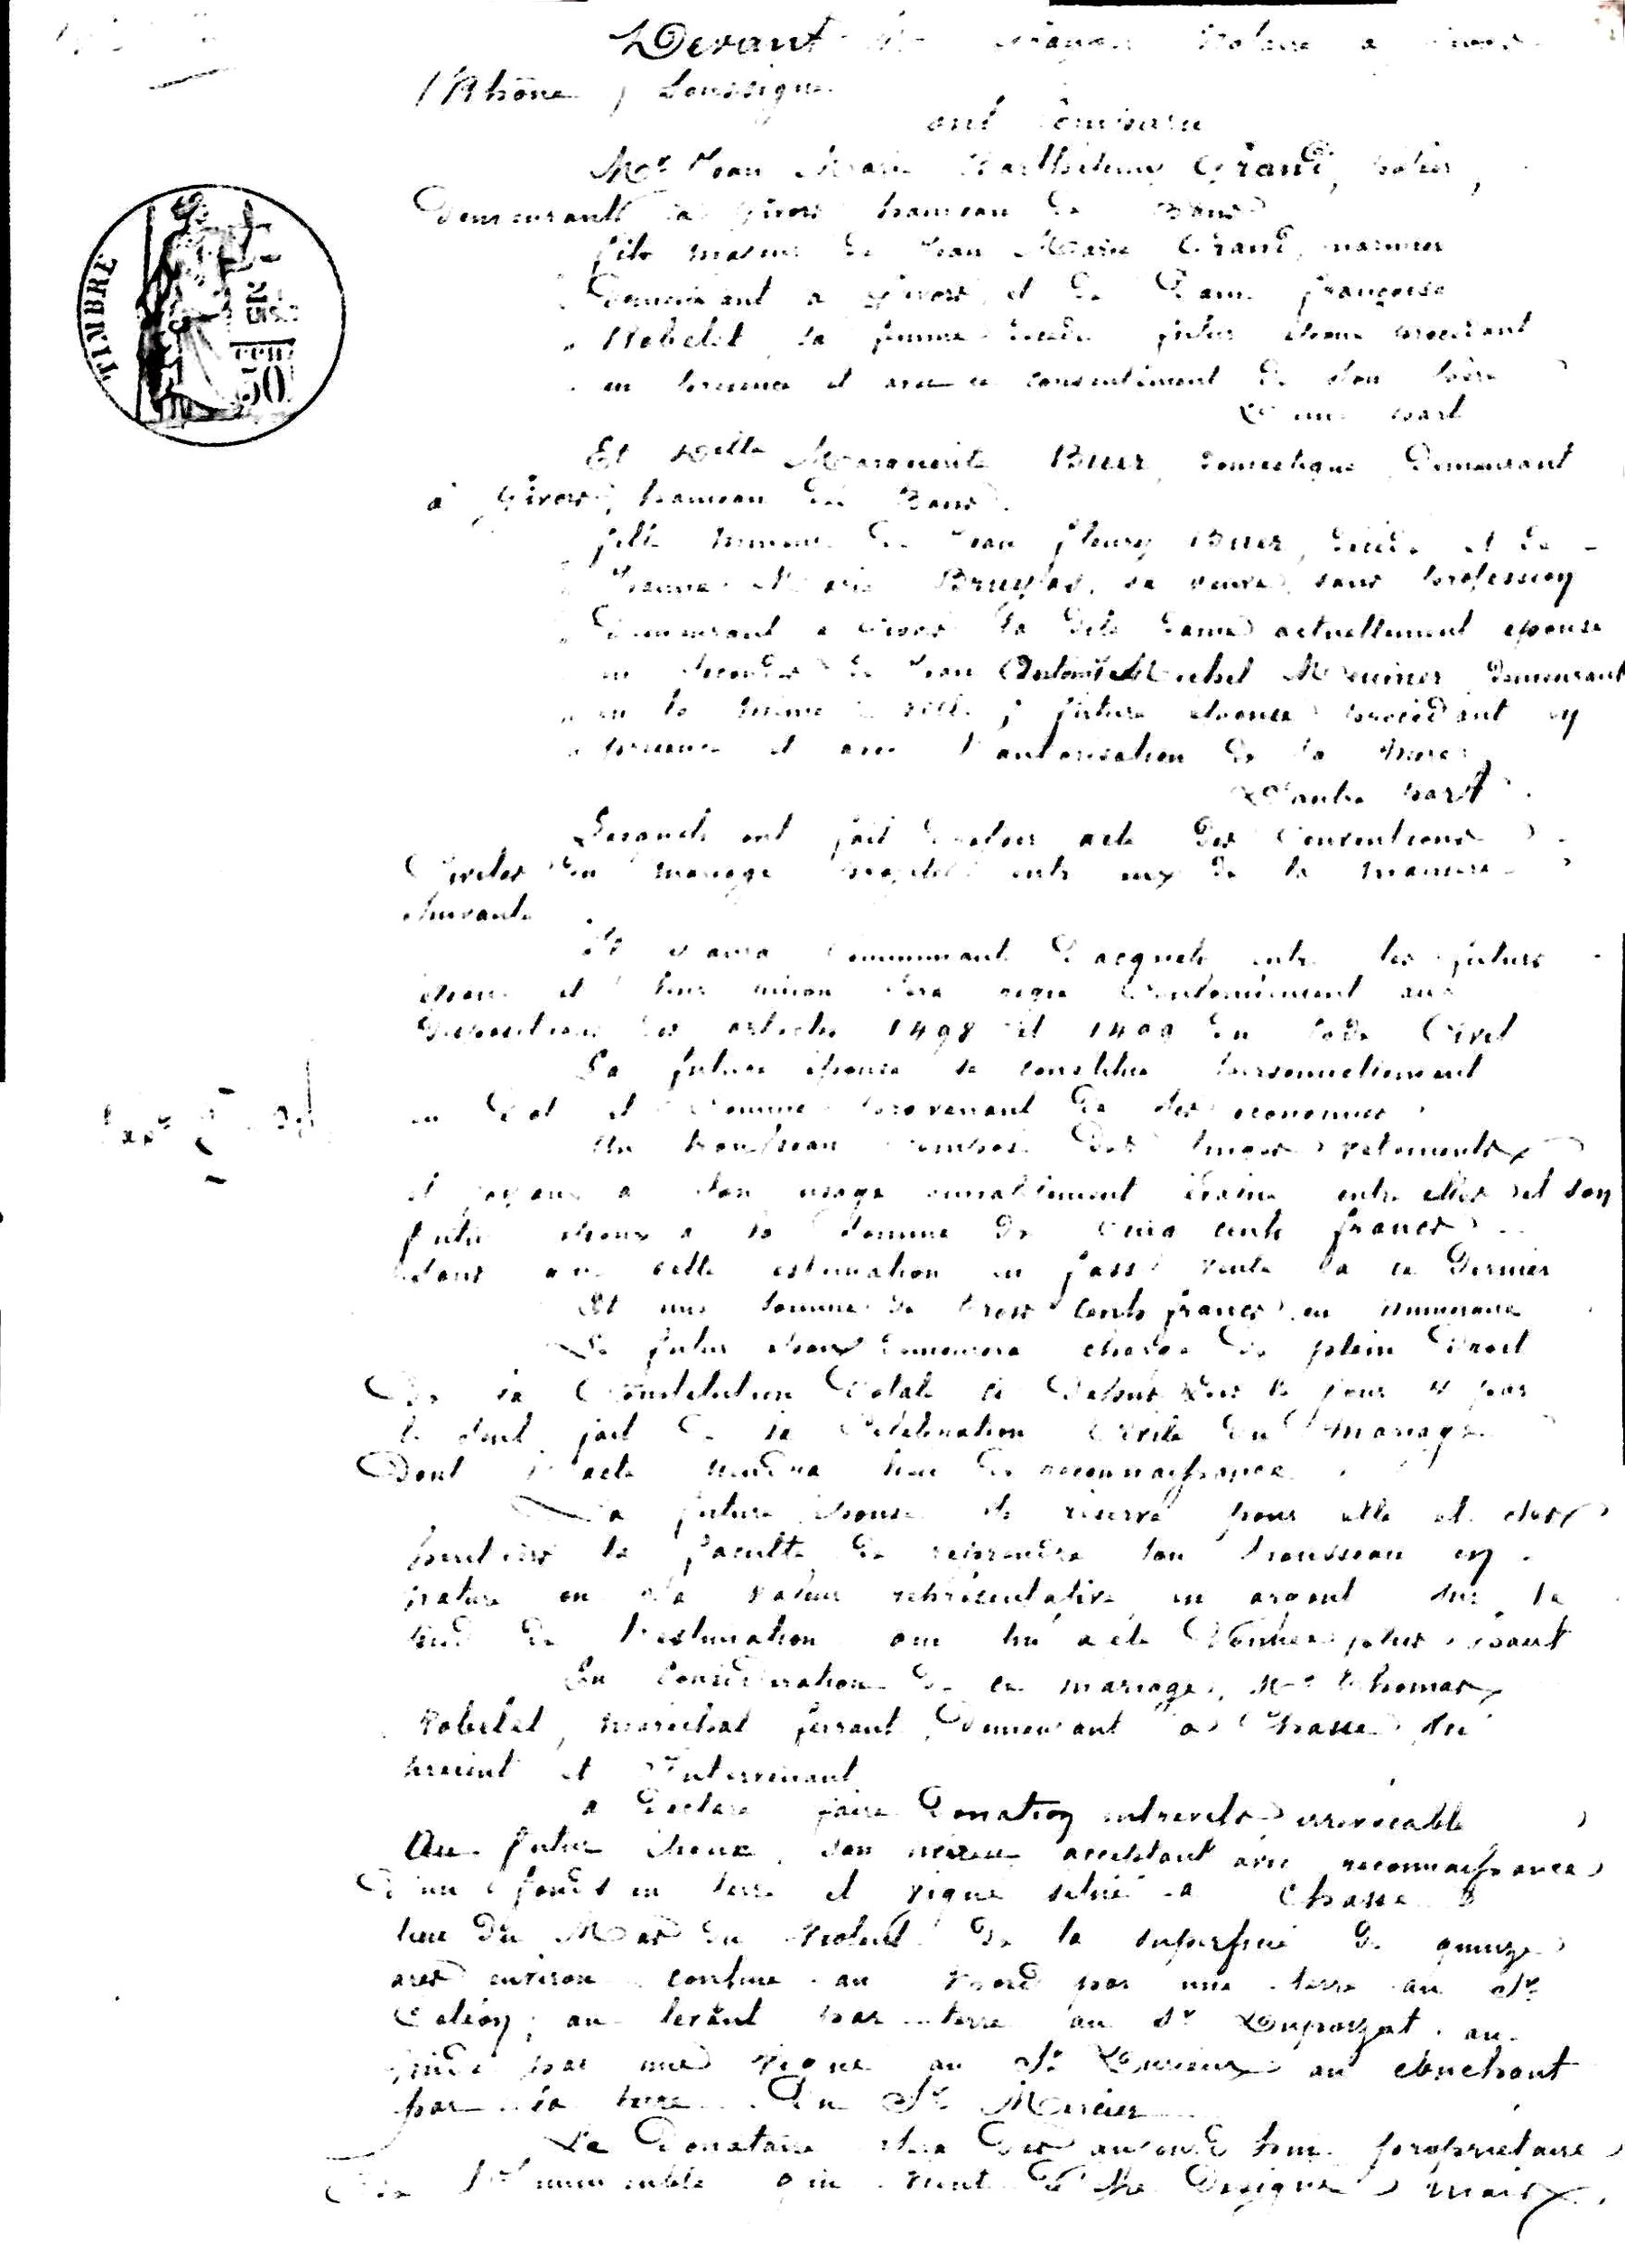 Devant Me notaire a Givors
(Rhône) Soussigné
ont Comparu
Mr Jean Marie Barthélemy Grand, potier,
demeurant à Givors hameau de Bans
fils majeur de Jean Marie Grand, marinier
demeurant a Givors, et de Dame françoise
Robelet, sa femme décédée, futur époux procédant
en présence et avec le consentement de son père
D'une part
Et Delle Marguerite Buer, domestique, demeurant
à Givors, hameau de Bans.
fille mineure de Jean fleury Buer, décédé et de
Jeanne Marie Bruyas, sa veuve, sans profession
demeurant a Givors la dite dame actuellement epouse
en secondes de Jean Antoine Michel Meunier, demeurant
en la même ville; future épouse procédant en
présence et avec l'autorisation de sa mère,
D'autre part.
Lesquels ont fait dresser acte des Conventions
Civiles du mariage projeté entre eux de la manière
suivante
Il y aura Communauté d'acquets entre les futurs
époux et leur union sera régie Conformément aux
dispositions des articles 1498 et 1499 du Code Civil
La future épouse se constitue personnellement
en dot et comme provenant de ses économies
Un trousseau composé des linges vetements
et joyaux a son usage amiablement évalué entre elle et son
futur époux a la somme de Cinq cents francs
sans que cette estimation en fasse vente à ce dernier
Et une somme de trois Cents francs en numéraire
Le futur époux demeurera chargé de plein Droit
De la Constitution Dotale ci dessus par le jour et par
le seul fait de la Célébration Civile du Mariage
Dont l'acte tiendra lieu de reconnaissance
La future épouse se réserve pour elle et ses
héritiers la faculté de reprendre son trousseau en
nature ou sa valeur représentative en argent sur le
pied de l'estimation qui lui a été donnée plus haut
En Considération de ce mariage, Mr Thomas
Robelet, maréchal ferrant, demeurant à Chasse ici
présent et Intervenant
a déclaré faire Donation entrevifs irrévocable
Au futur époux, son neveu acceptant avec reconnaissance
D'un fonds en terre et vigne situé a Chasse
lieu du Mas du de la superficie de quinze
ares environ confiné au Nord par une terre au Sr
au levant par terre au Sr au
midi par une vigne au Sr au couchant
par la terre Du Sr Mercier
Le Donataire sera dès aujourd'hui propriétaire
De l'Immeuble qui vient d'être Désigné mais
TIMBRE
cen
50